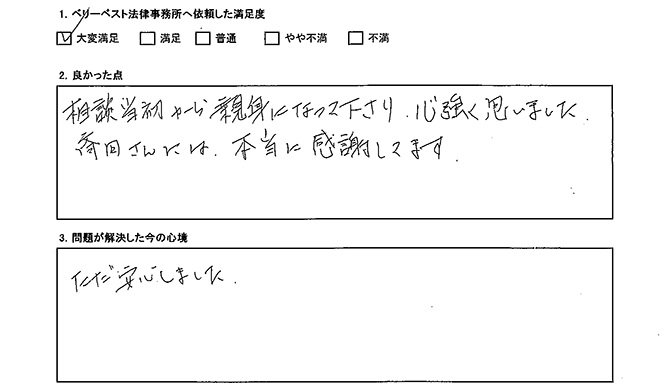 1. ベリーベスト法律事務所へ依頼した満足度
大変満足 満足 普通 やや不満 不満
2. 良かった点
相談当初から親身になって下さり、心強く思いました。
斉田さんには、本当に感謝してます。
3. 問題が解決した今の心境
ただ安心しました。